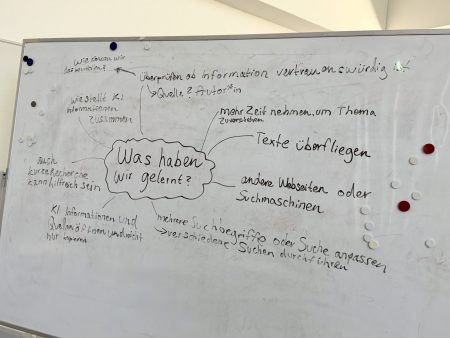 Wie können wir
Überprüfen ob Information vertrauenswürdig ist
→ Quelle? Autor*in
Wie stellt KI
Informationen
zusammen
mehr Zeit nehmen, um Thema
zu verstehen
Texte überfliegen
Was haben
wir gelernt?
auch
kurze Recherche
kann hilfreich sein
andere Webseiten oder
Suchmaschinen
KI Informationen und
Quellen öffnen und nicht
nur
mehrere Suchbegriffe oder Suche anpassen
→ verschiedene Suchen durchführen